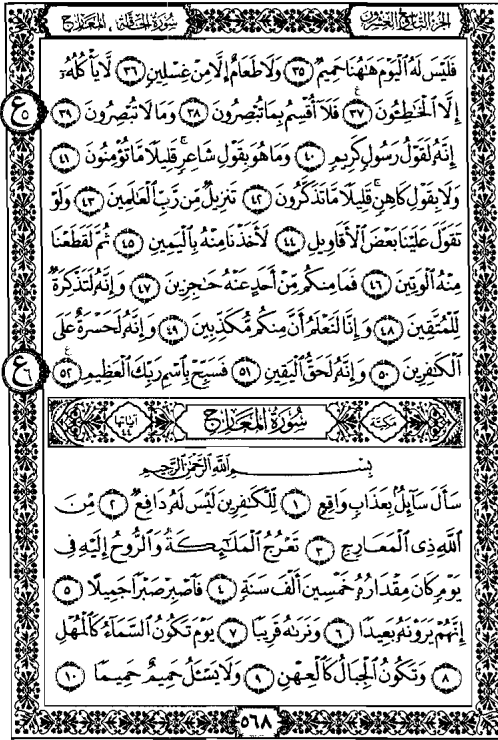 الجزء التاسع والعشرون
سورة الحاقة ، المعارج
فَلَيْسَ لَهُ الْيَوْمَ هَٰهُنَا حَمِيمٌ ٣٥ وَلَا طَعَامٌ إِلَّا مِنْ غِسْلِينٍ ٣٦ لَّا يَأْكُلُهُ
إِلَّا الْخَٰطِـُٔونَ ٣٧ فَلَا أُقْسِمُ بِمَا تُبْصِرُونَ ٣٨ وَمَا لَا تُبْصِرُونَ ٣٩
إِنَّهُ لَقَوْلُ رَسُولٍ كَرِيمٍ ٤٠ وَمَا هُوَ بِقَوْلِ شَاعِرٍ قَلِيلًا مَّا تُؤْمِنُونَ ٤١
وَلَا بِقَوْلِ كَاهِنٍ قَلِيلًا مَّا تَذَكَّرُونَ ٤٢ تَنزِيلٌ مِّن رَّبِّ الْعَٰلَمِينَ ٤٣ وَلَوْ
تَقَوَّلَ عَلَيْنَا بَعْضَ الْأَقَاوِيلِ ٤٤ لَأَخَذْنَا مِنْهُ بِالْيَمِينِ ٤٥ ثُمَّ لَقَطَعْنَا
مِنْهُ الْوَتِينَ ٤٦ فَمَا مِنكُم مِّنْ أَحَدٍ عَنْهُ حَٰجِزِينَ ٤٧ وَإِنَّهُ لَتَذْكِرَةٌ
لِّلْمُتَّقِينَ ٤٨ وَإِنَّا لَنَعْلَمُ أَنَّ مِنكُم مُّكَذِّبِينَ ٤٩ وَإِنَّهُ لَحَسْرَةٌ عَلَى
الْكَٰفِرِينَ ٥٠ وَإِنَّهُ لَحَقُّ الْيَقِينِ ٥١ فَسَبِّحْ بِاسْمِ رَبِّكَ الْعَظِيمِ ٥٢
ع ٥
ع ٦
مكية
سُورَةُ الْمَعَارِجِ
آياتها ٤٤
بِسْمِ اللَّهِ الرَّحْمَٰنِ الرَّحِيمِ
سَأَلَ سَائِلٌ بِعَذَابٍ وَاقِعٍ ١ لِّلْكَٰفِرِينَ لَيْسَ لَهُ دَافِعٌ ٢ مِّنَ
اللَّهِ ذِي الْمَعَارِجِ ٣ تَعْرُجُ الْمَلَٰئِكَةُ وَالرُّوحُ إِلَيْهِ فِي
يَوْمٍ كَانَ مِقْدَارُهُ خَمْسِينَ أَلْفَ سَنَةٍ ٤ فَاصْبِرْ صَبْرًا جَمِيلًا ٥
إِنَّهُمْ يَرَوْنَهُ بَعِيدًا ٦ وَنَرَىٰهُ قَرِيبًا ٧ يَوْمَ تَكُونُ السَّمَاءُ كَالْمُهْلِ
٨ وَتَكُونُ الْجِبَالُ كَالْعِهْنِ ٩ وَلَا يَسْـَٔلُ حَمِيمٌ حَمِيمًا ١٠
٥٦٨